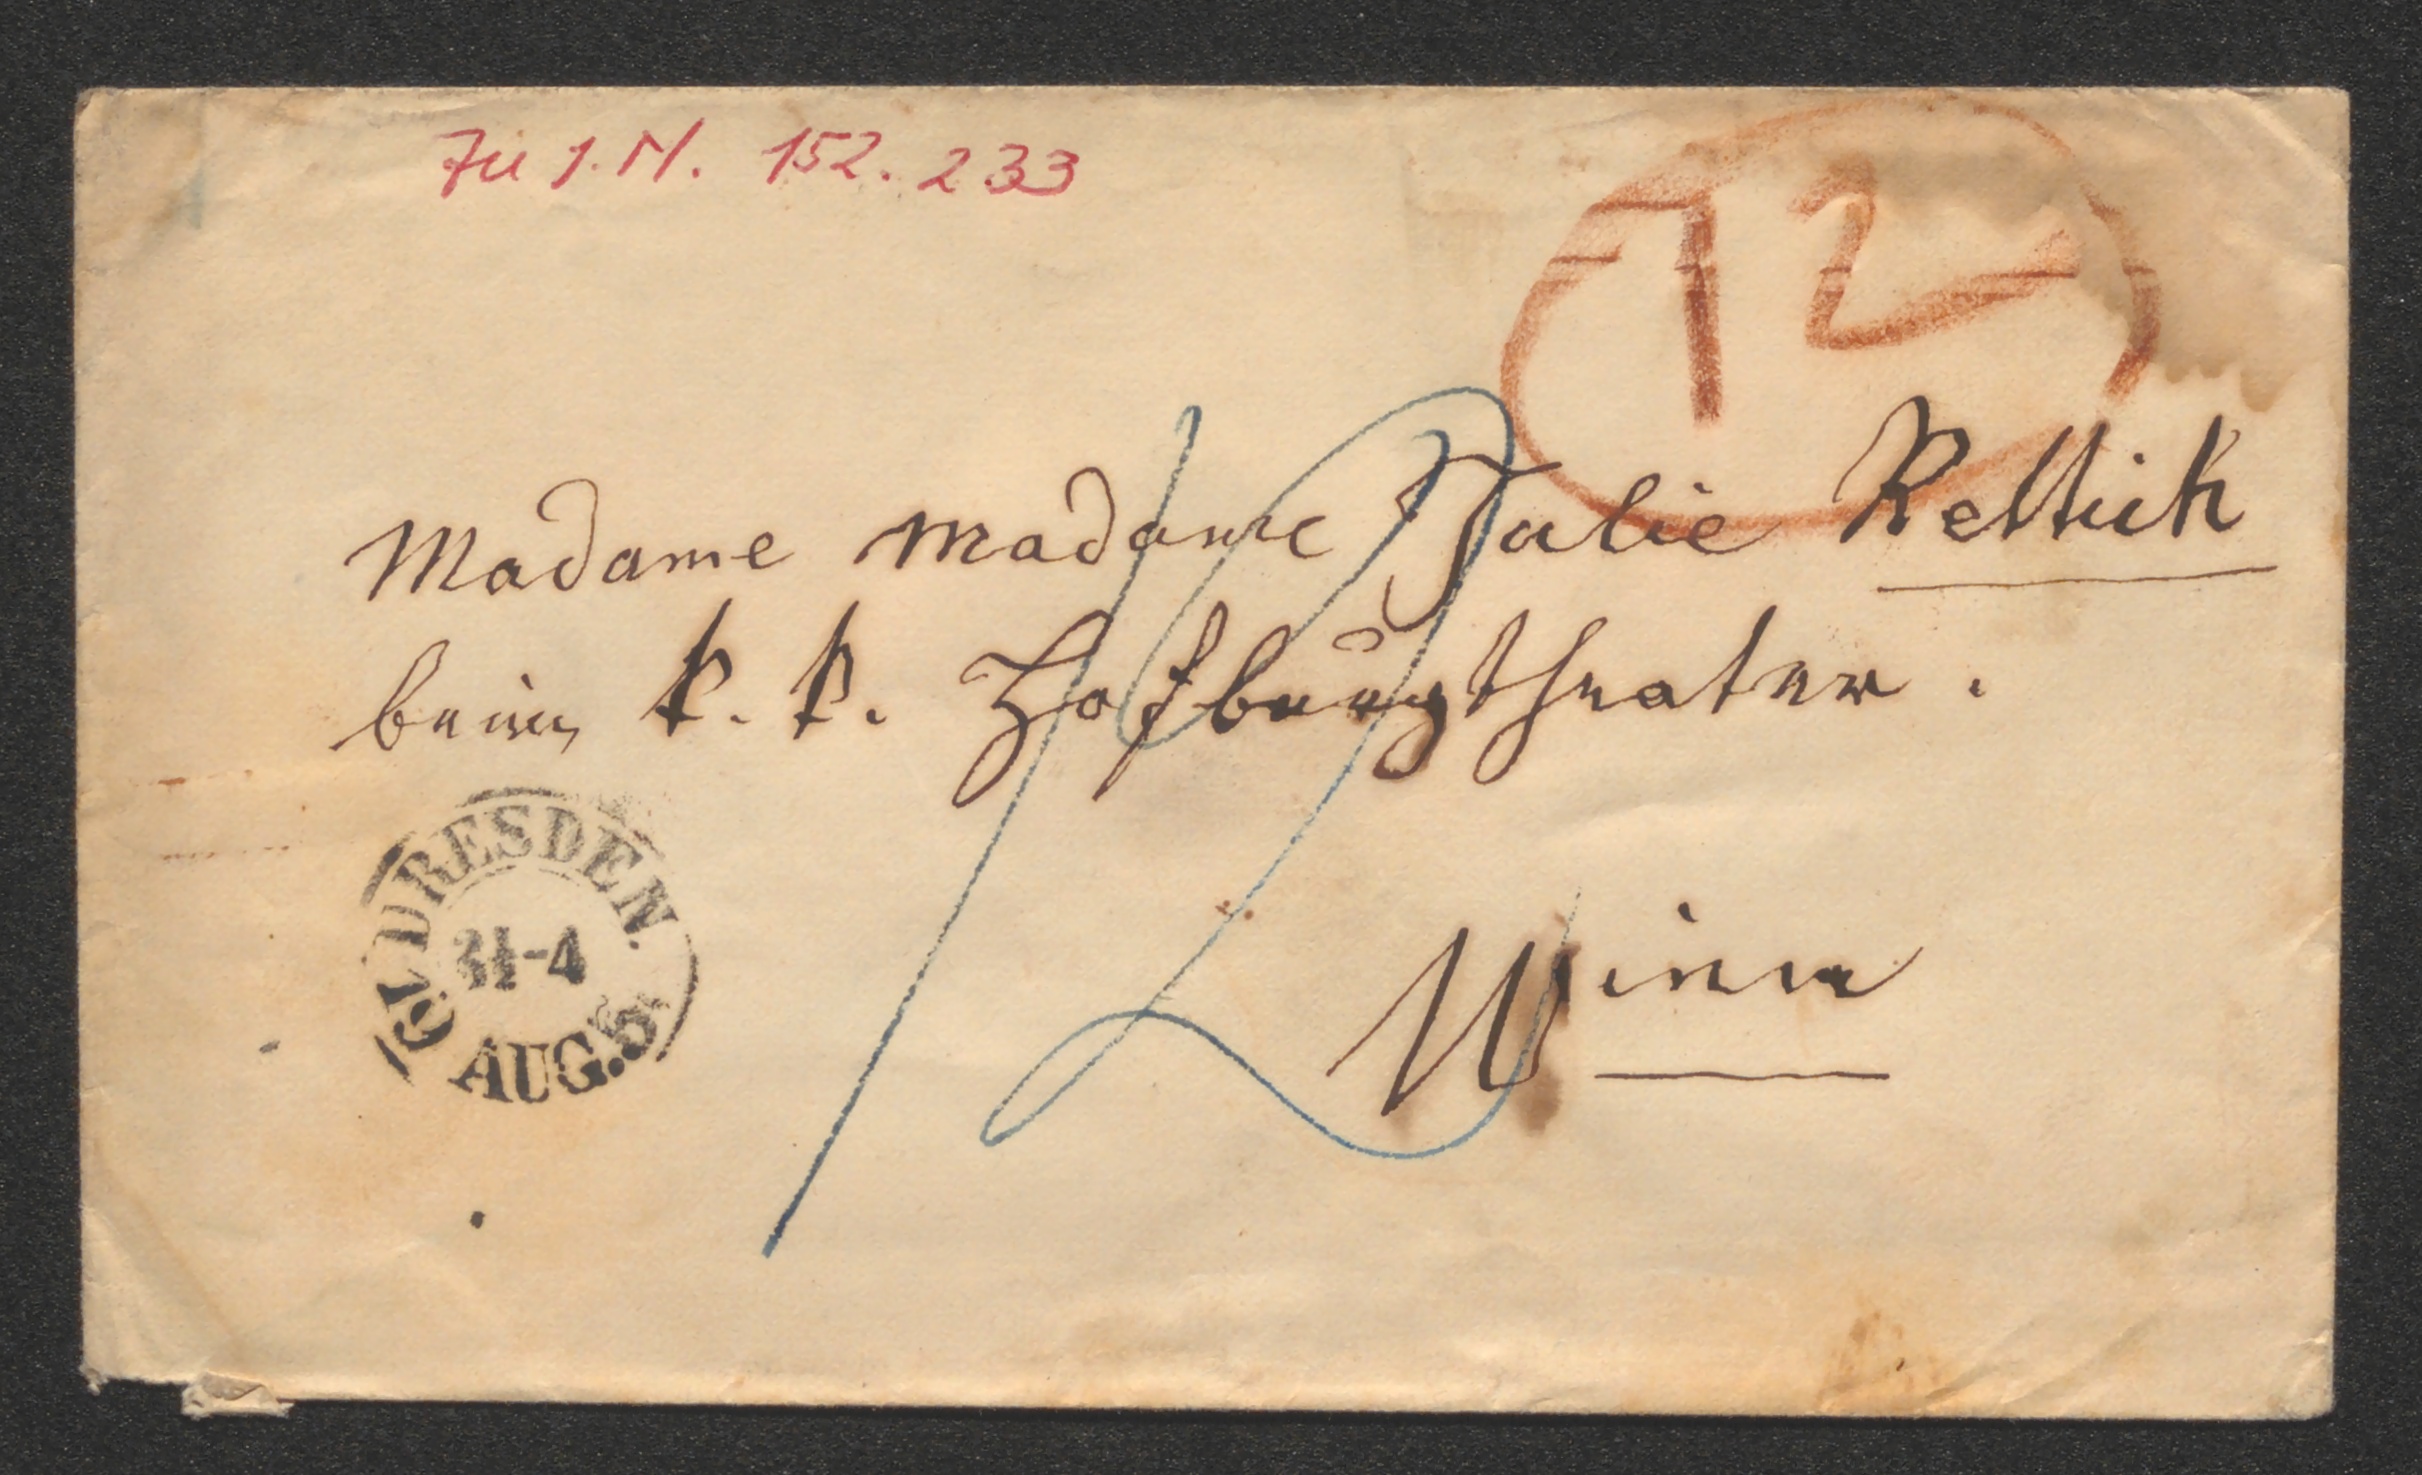 Zu J.N. 152.233
12
Madame Madame Julie Rettich
beim k. k. Hofburgtheater.
Wien
DRESDEN.
3½-4
AUG. 5